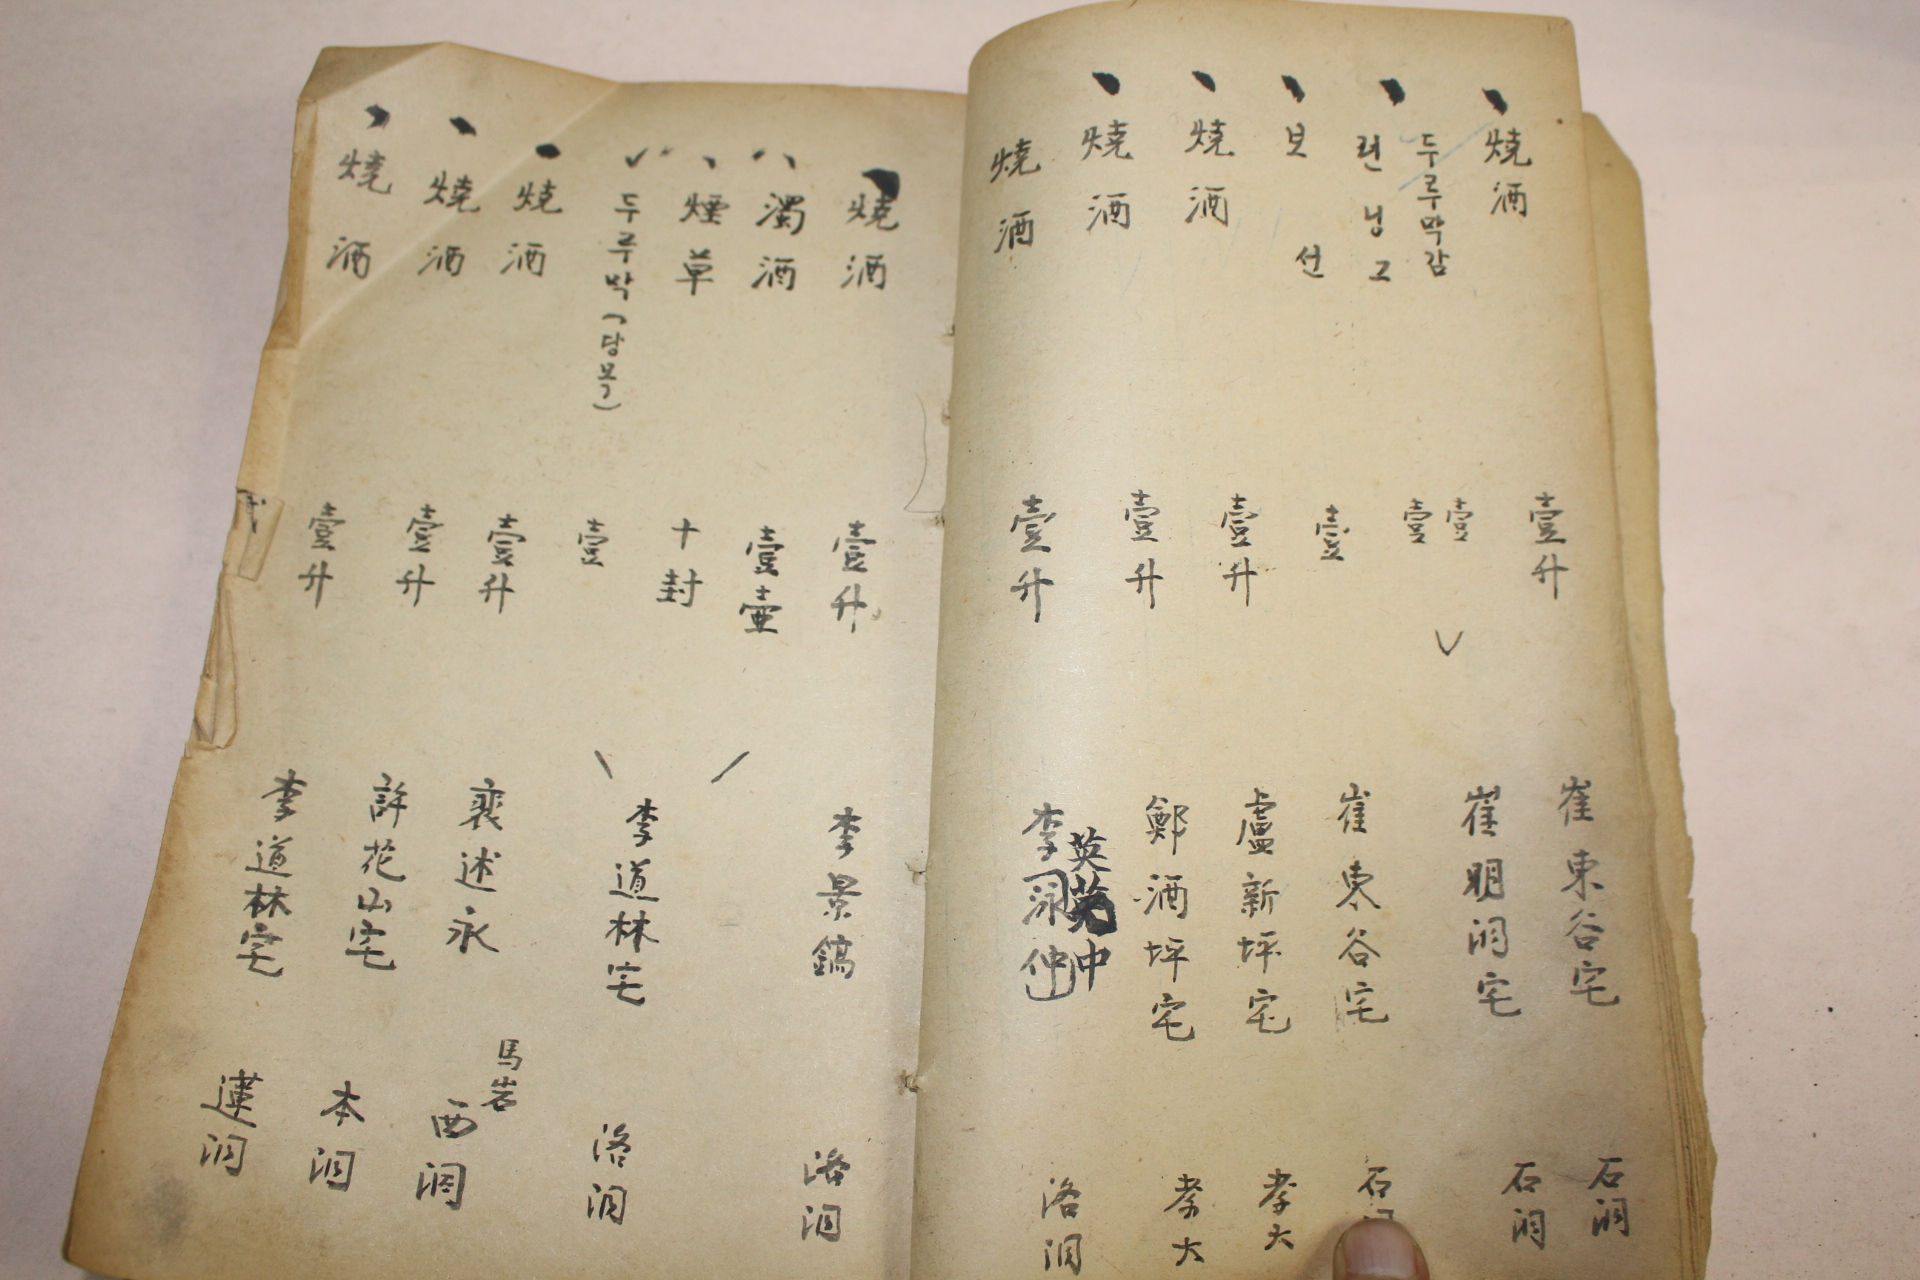 燒酒 壹升 崔東谷宅 石洞
두루막감 壹
련닝그 壹 崔明洞宅 石洞
보선 壹 崔東谷宅 石
燒酒 壹升 盧新坪宅 孝大
燒酒 壹升 鄭酒坪宅 孝大
燒酒 壹升 李泳仲 英中 洛洞
燒酒 壹升 李景鎬 洛洞
濁酒 壹壷
煙草 十封
두루막(당목) 壹 李道林宅 洛洞
燒酒 壹升 裵述永 馬岩 西洞
燒酒 壹升 許花山宅 本洞
燒酒 壹升 李道林宅 蓮洞